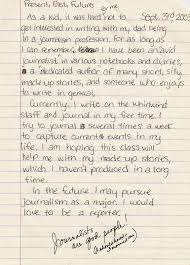 Present, Past, Future
Sept. 3rd 200
As a kid, it was hard not to
get interested in writing with my dad being
in a foreign profession. For as long as
I can remember, I have been an avid
journalist, in various notebooks and diaries,
a dedicated author of many short, silly
made-up stories, and someone who enjoys
to write in general.
Currently, I write on the Whirlwind
staff and journal in my free time. I
try to journal several times a week
to capture current events in my
life. I am hoping this class will
help me with my made-up stories,
which I haven't produced in a long
time.
In the future I may pursue
journalism as a major. I would
love to be a reporter.
Journalists
are good people!